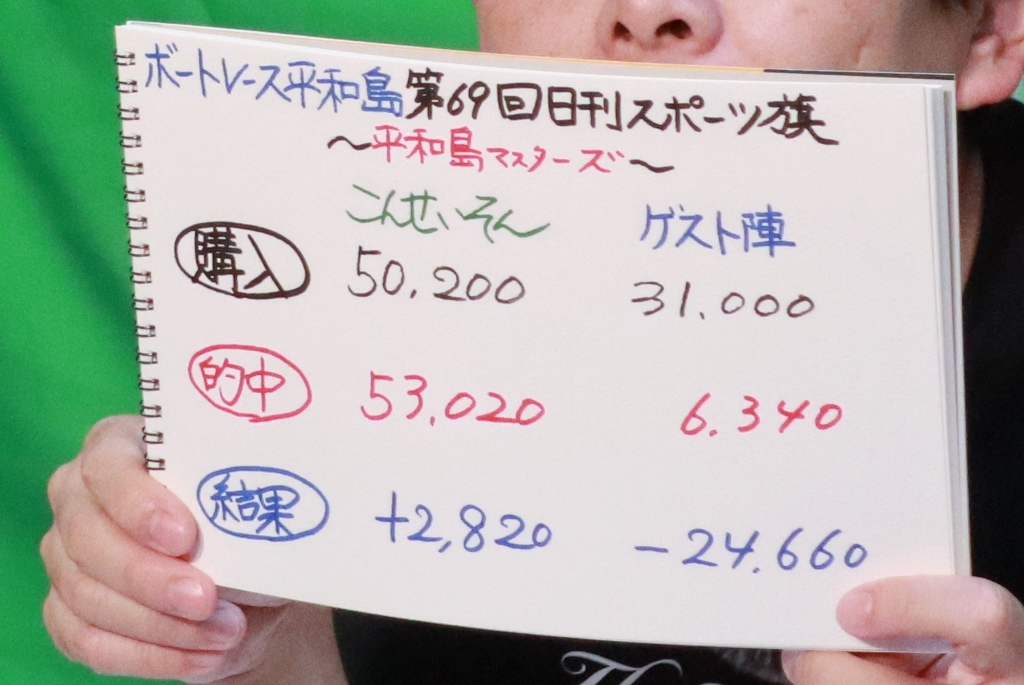 ボートレース平和島第69回日刊スポーツ旗
～平和島マスターズ～
こんせいそん ゲスト陣
購入 50,200 31.000
的中 53,020 6.340
結果 +2,820 -24.660